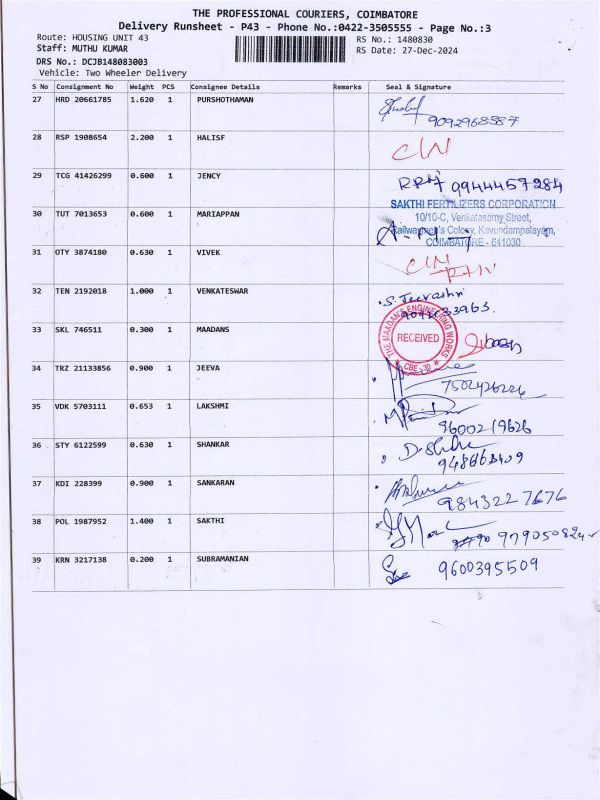 THE PROFESSIONAL COURIERS, COIMBATORE
Delivery Runsheet - P43 - Phone No.:0422-3505555 - Page No.:3
Route: HOUSING UNIT 43 RS No.: 1480830
Staff: MUTHU KUMAR RS Date: 27-Dec-2024
DRS No.: DCJB148083003
Vehicle: Two Wheeler Delivery
S No Consignment No Weight PCS Consignee Details Remarks Seal & Signature
27 HRD 20661785 1.620 1 PURSHOTHAMAN
28 RSP 1908654 2.200 1 HALISF
29 TCG 41426299 0.600 1 JENCY 9944457284
SAKTHI FERTILIZERS CORPORATION
30 TUT 7013653 0.600 1 MARIAPPAN 10/10-C, Venkatasamy Street,
Railwaymen's Colony, Kavundampalayam,
COIMBATORE - 641030
31 OTY 3874180 0.630 1 VIVEK
32 TEN 2192018 1.000 1 VENKATESWAR
33 SKL 746511 0.300 1 MAADANS THE MAADANS ENGINEERING WORKS RECEIVED CBE - 30
34 TRZ 21133856 0.900 1 JEEVA
7502426226
35 VDK 5703111 0.653 1 LAKSHMI
9600219626
36 STY 6122599 0.630 1 SHANKAR
37 KDI 228399 0.900 1 SANKARAN
9843227676
38 POL 1987952 1.400 1 SAKTHI
39 KRN 3217138 0.200 1 SUBRAMANIAN 9600395509